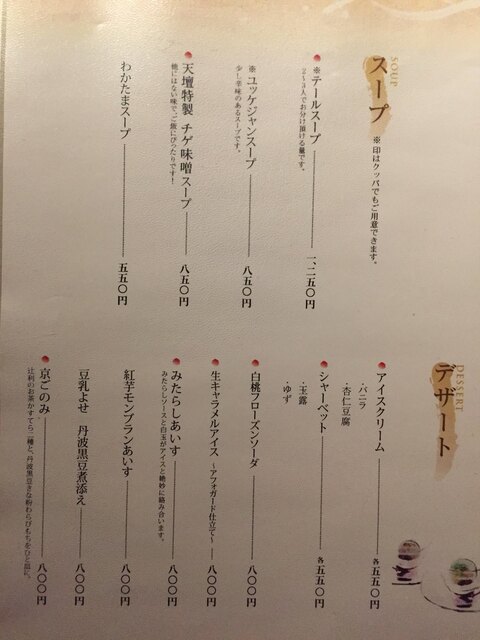 スープ
SOUP
※印はクッパでもご用意できます。
※テールスープ 一、二五〇円
2〜3人でお分け頂ける量です。
※ユッケジャンスープ 八五〇円
少し辛味のあるスープです。
天壇特製 チゲ味噌スープ 八五〇円
他にはない味で、ご飯にぴったりです!
わかたまスープ 五五〇円
デザート
DESSERT
アイスクリーム 各五五〇円
・バニラ
・杏仁豆腐
シャーベット 各五五〇円
・玉露
・ゆず
白桃フローズンソーダ 八〇〇円
生キャラメルアイス 〜アフォガード仕立て〜 八〇〇円
みたらしあいす 八〇〇円
みたらしソースと白玉がアイスと絶妙に絡み合います。
紅芋モンブランあいす 八〇〇円
豆乳よせ 丹波黒豆煮添え 八〇〇円
京ごのみ 八〇〇円
辻利のお茶かすてら二種と、丹波黒豆きな粉わらびもちをひと皿に。